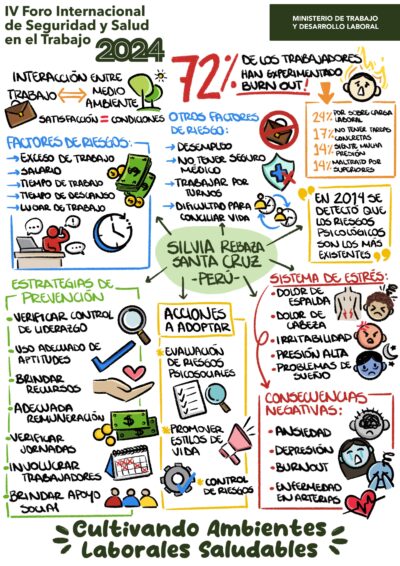 IV Foro Internacional
de Seguridad y Salud
en el Trabajo 2024
MINISTERIO DE TRABAJO
Y DESARROLLO LABORAL
INTERACCIÓN ENTRE
TRABAJO
MEDIO
AMBIENTE
SATISFACCIÓN = CONDICIONES
72% DE LOS TRABAJADORES
HAN EXPERIMENTADO
BURN OUT!
24% POR SOBRE CARGA
LABORAL
17% NO TENER TAREAS
CONCRETAS
14% SIENTE MUCHA
PRESIÓN
14% MALTRATO POR
SUPERIORES
FACTORES DE RIESGOS:
→ EXCESO DE TRABAJO
→ SALARIO
→ TIEMPO DE TRABAJO
→ TIEMPO DE DESCANSO
→ LUGAR DE TRABAJO
OTROS FACTORES
DE RIESGO:
→ DESEMPLEO
→ NO TENER SEGURO
MÉDICO
→ TRABAJAR POR
TURNOS
→ DIFICULTAD PARA
CONCILIAR VIDA
EN 2014 SE
DETECTÓ QUE LOS
RIESGOS
PSICOLÓGICOS
SON LOS MÁS
EXISTENTES
SILVIA REBAZA
SANTA CRUZ
-PERÚ-
ESTRATEGIAS DE
PREVENCIÓN
• VERIFICAR CONTROL
DE LIDERAZGO
• USO ADECUADO DE
APTITUDES
• BRINDAR
RECURSOS
• ADECUADA
REMUNERACIÓN
• VERIFICAR
JORNADAS
• INVOLUCRAR
TRABAJADORES
• BRINDAR APOYO
SOCIAL
ACCIONES
A ADOPTAR
* EVALUACIÓN
DE RIESGOS
PSICOSOCIALES
* PROMOVER
ESTILOS DE
VIDA
* CONTROL
DE RIESGOS
SISTEMA DE ESTRÉS:
• DOLOR DE
ESPALDA
• DOLOR DE
CABEZA
• IRRITABILIDAD
• PRESIÓN ALTA
• PROBLEMAS DE
SUEÑO
CONSECUENCIAS
NEGATIVAS:
• ANSIEDAD
• DEPRESIÓN
• BURNOUT
• ENFERMEDAD
EN ARTERIAS
Cultivando Ambientes
Laborales Saludables